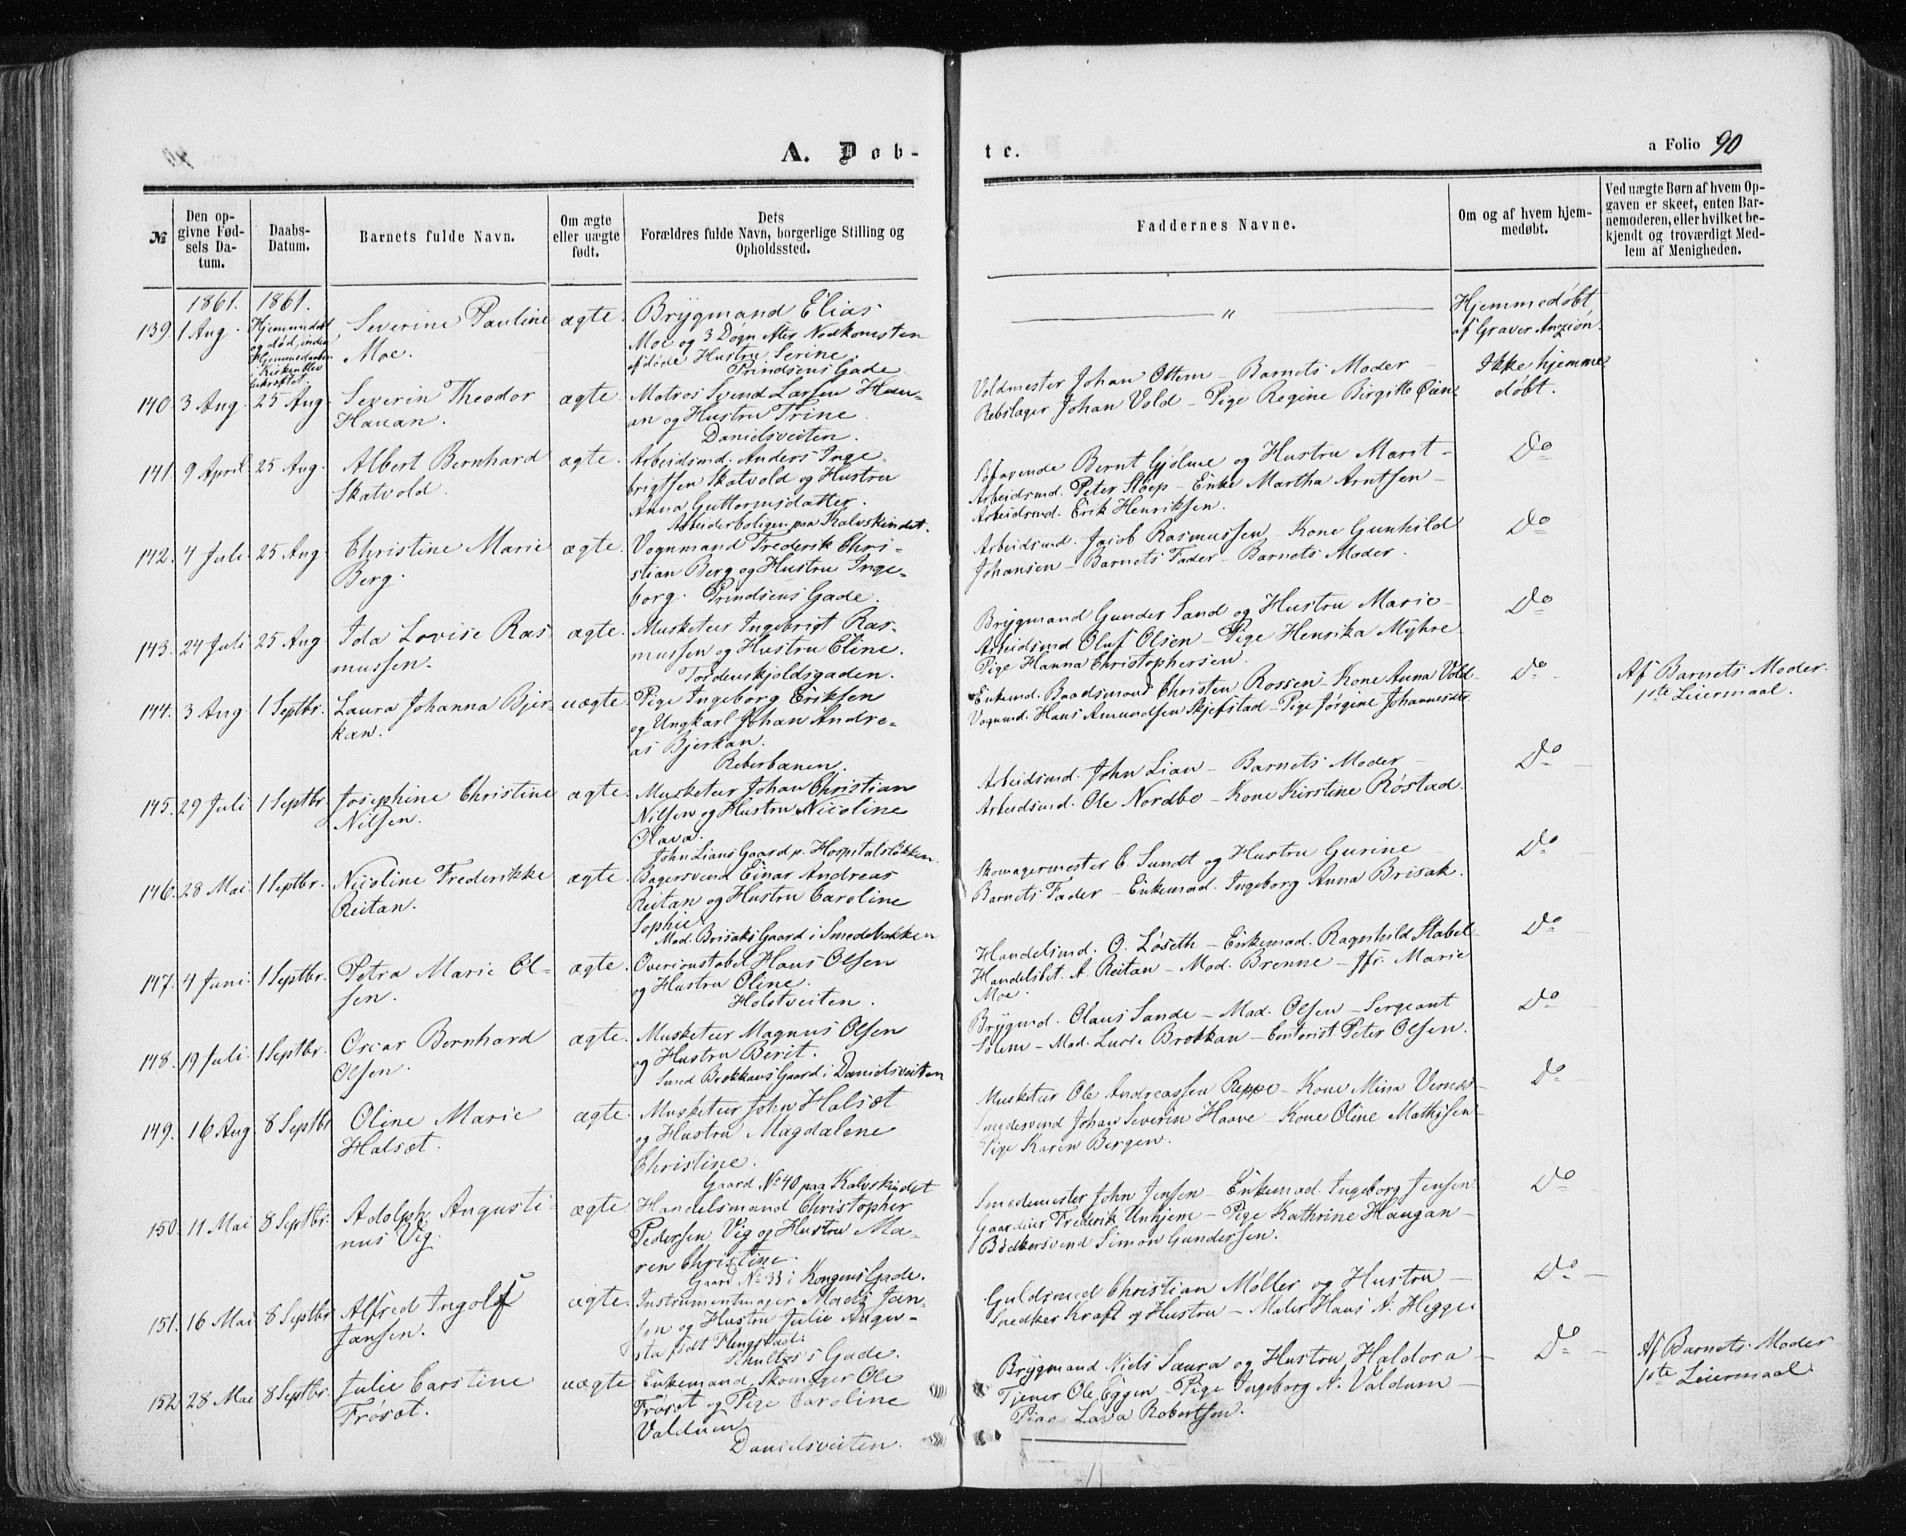 A. Døb-
te.
a Folio 90
№
Den op-
givne Fød-
sels Da-
tum.
Daabs-
Datum.
Barnets fulde Navn.
Om ægte
eller uægte
født.
Dets
Forældres fulde Navn, borgerlige Stilling og
Opholdssted.
Faddernes Navne.
Om og af hvem hjem-
medøbt.
Ved uægte Børn af hvem Op-
gaven er skeet, enten Bar-
nemoderen, eller hvilket be-
kjendt og troværdigt Med-
lem af Menigheden.
1861. 1861.
139. 1 Aug.
Hjemmedøbt
og død, inden
Hjemmedaaben
i Kirken blev
bekræftet.
Severine Pauline
Moe.
ægte.
Brygmand Elias
Moe og 3 Døgn efter Nedkomsten
afdøde Hustru Serine.
Prindsens Gade
"
Hjemmedøbt
af Graver Anziøn.
140. 3 Aug. 25 Aug.
Severin Theodor
Hauan.
ægte.
Matros Svend Larsen Hau-
an og Hustru Trine.
Danielsveiten.
Voldmester Johan Ottem – Barnets Moder –
Rebslager Johan Vold – Pige Regine Birgitte Øien
Ikke hjemme
døbt.
141. 9 April 25 Aug.
Albert Bernhard
Skatvold.
ægte.
Arbeidsmd. Anders Inge-
brigtsen Skatvold og Hustru
Anna Guttormsdatter.
Arbeiderboligen paa Kalvskindet.
Søfarende Bernt Gjølme og Hustru Marit –
Arbeidsmd. Peter Sloep – Enke Martha Arntsen –
Arbeidsmd. Erik Henriksen.
Do
142. 4 Juli 25 Aug.
Christine Marie
Berg.
ægte.
Vognmand Frederik Chri-
stian Berg og Hustru Inge-
borg. Prindsens Gade.
Arbeidsmd. Jacob Rasmussen – Kone Gunhild
Johansen – Barnets Fader – Barnets Moder.
Do
143. 24 Juli 25 Aug.
Ida Lovise Ras-
mussen.
ægte.
Musketeur Ingebrigt Ras-
mussen og Hustru Eline.
Tordenskjoldsgaden.
Brygmand Gunder Sand og Hustru Marie –
Arbeidsmd Oluf Olsen – Pige Henrika Myhre
Pige Hanna Christophersen.
Do
144. 3 Aug. 1 Septbr.
Laura Johanna Bjer-
kan.
uægte.
Pige Ingeborg Eriksen
og Ungkarl Johan Andre-
as Bjerkan.
Reberbanen.
Enkemd. Baadsmand Christen Rossen – Kone Anna Vold –
Vognmd. Hans Amundsen Skjefstad – Pige Jørgine Johannesdtr
Do
Af Barnets Moder.
1ste Leiermaal.
145. 29 Juli 1 Septbr
Josephine Christine
Nilsen.
ægte.
Musketeur Johan Christian
Nilsen og Hustru Nicoline
Olava.
John Lians Gaard p. Hospitalsløkken.
Arbeidsmd. John Lian – Barnets Moder –
Arbeidsmd. Ole Nordbo – Kone Kirstine Røstad.
Do
146. 28 Mai 1 Septbr.
Nicoline Frederikke
Reitan.
ægte.
Bagersvend Einar Andreas
Reitan og Hustru Caroline
Sophie.
Mad. Brisaks Gaard i Smedebakken
Skomagermester C. Sundt og Hustru Gurine
Barnets Fader – Enkemad. Ingeborg Anna Brisak.
Do
147. 4 Juni 1 Septbr.
Petra Marie Ol-
sen.
ægte.
Overconstabel Hans Olsen
og Hustru Oline.
Holstveiten.
Handelsmd. O. Løseth – Enkemad. Ragnhild Stabel
Handelsbet. A. Reitan – Mad. Brenne – Jfr. Marie
Moe.
Do
148. 19 Juli 1 Septbr.
Oscar Bernhard
Olsen.
ægte.
Musketeur Magnus Olsen
og Hustru Berit.
Sund Brekkans Gaard i Danielsveiten
Brygmd. Olaus Sande – Mad. Olsen – Sergeant
Solem – Mad. Brokkan – Contorist Peter Olsen.
Do
149. 16 Aug 8 Septbr
Oline Marie
Halsæt.
ægte.
Musketeur John Halsæt
og Hustru Magdalene
Christine.
Gaard No 40 paa Kalvskindet
Musketeur Ole Andreassen Reppe – Kone Mina
Smedesvend Johan Severin Haave – Kone Oline Mathisen
Pige Karen Bergen.
Do
150. 11 Mai 8 Septbr.
Adolph Augusti-
nus Vig.
ægte.
Handelsmand Christopher
Pedersen Vig og Hustru Ma-
ren Christine.
Gaard No 33 i Kongens Gade.
Smedemester John Jensen – Enkemad. Ingeborg Jensen
Gaardeier Frederik Unhjem – Pige Kathrine Haugan –
Bødkersvend Simon Gundersen.
Do
151. 16 Mai 8 Septbr
Alfred Ingolf
Jansen.
ægte.
Instrumentmager Mads Jan-
sen og Hustru Julie Augu-
sta født Plengstad.
Schultzes Gade.
Guldsmed Christian Møller og Hustru –
Snedker Kraft og Hustru – Maler Hans A. Hegge.
Do
152. 28 Mai 8 Septbr.
Julie Carstine
Frøsæt.
uægte
Enkemand, Skomager Ole
Frøsæt og Pige Caroline
Valdum
Danielsveiten.
Brygmand Niels Saura og Hustru Haldora –
Tjener Ole Eggen – Pige Ingeborg A. Valdum –
Pige Lava Robertsen.
Do
Af Barnets Moder
1ste Leiermaal.